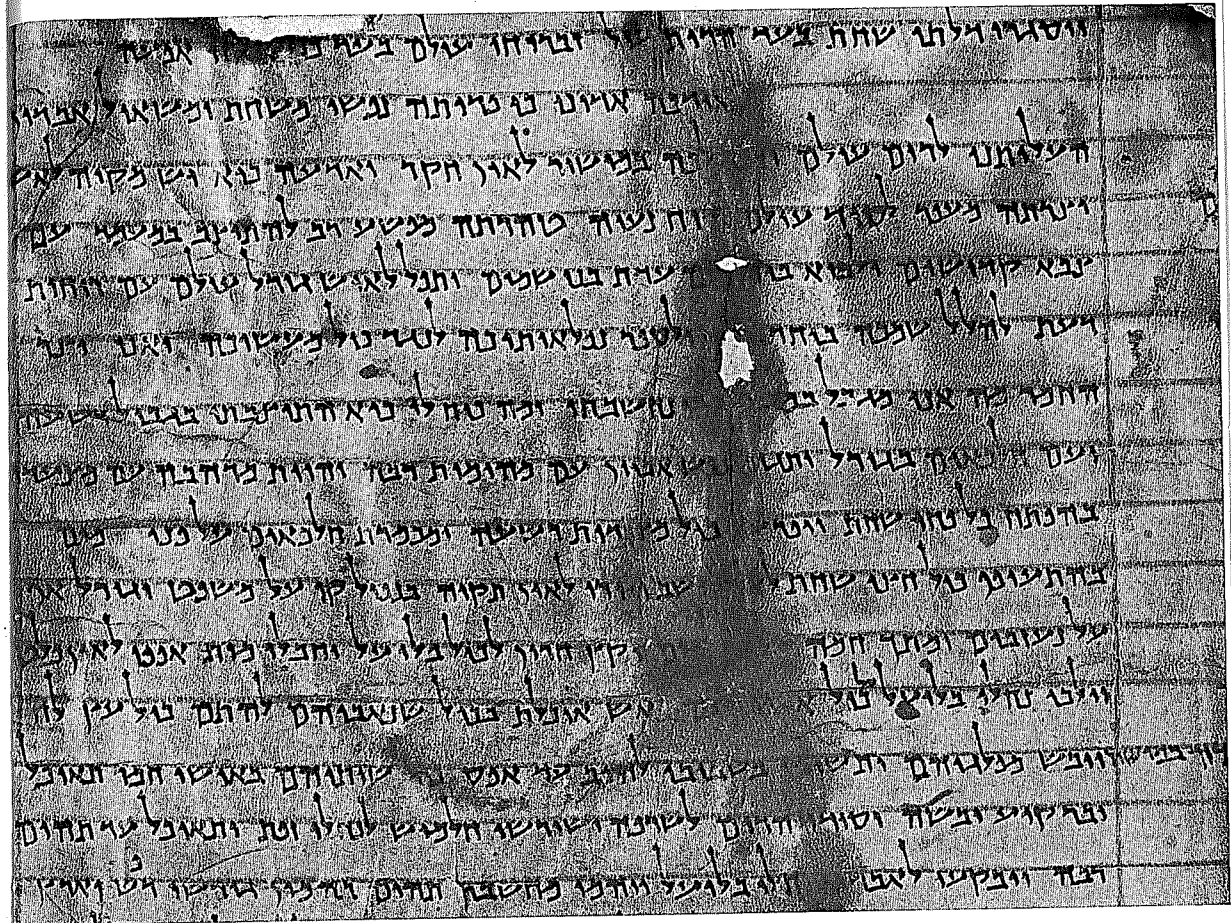 ויסגרו דלתי שחת בעד הרית עול ובריחי עולם בעד אפעה
אודכה אדוני כי פדיתה נפשי משחת ומשאול אבדון
העליתני לרום עולם במישור לאין חקר ואדעה כיא יש מקוה לאשר
יצרתה מעפר לסוד עולם ורוח נעוה טהרתה מפשע רב להתיצב במעמד עם
צבא קדושים ולבוא עדת בני שמים ותפל לאיש גורל עולם עם רוחות
דעת להלל שמכה ביחד ולספר נפלאותיכה לנגד כול מעשיכה ואני יצר
החמר מה אני מגבל נחשבתי ומה כוח לי כיא התיצבתי בגבול רשעה
ועם חלכאים בגורל ותגור נפש אביון עם מהומות רבה והוות מדהבה עם מצעדי
בהפתח כל פחי שחת כול מצודות רשעה ומכמרת חלכאים על פני מים
בהתעופף כול חצי שחת ויורו לאין תקוה בנפול קו על משפט וגורל אף
על נעזבים ומתך חמה וקץ חרון לכול בליעל וחבלי מות אפפו לאין פלט
וילכו נחלי בליעל על כול כאש אוכלת בכול שנאביהם להתם כול עץ לח
ויבש מפלגיהם ותשוט בשביבי להוב עד אפס שותיהם באושי חמר תאוכל
וברקוע יבשה יסודי הרים לשרפה ושורשי חלמיש לנחלי זפת ותאוכל עד תהום
רבה ויבקעו נחלי בליעל ויהמו מחשבי תהום בהמון גורשי רפש וארץ